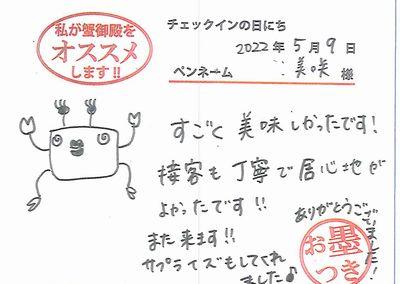 私が蟹御殿を
オススメ
します!!
チェックインの日にち
2022年5月9日
ペンネーム : 美咲 様
すごく美味しかったです!
接客も丁寧で居心地が
よかったです!!
また来ます!!
サプライズもしてくれ
ました♪
ありがとうござ
いました!
お墨
つき